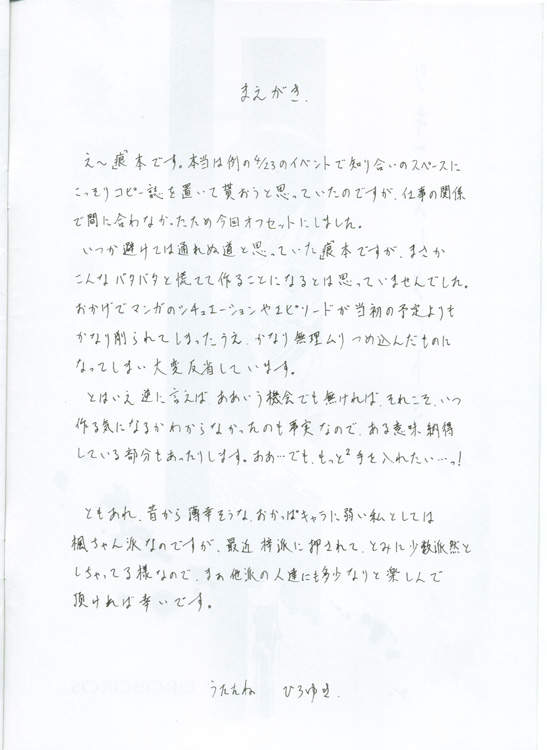 まえがき.
え〜痕本です。本当は例の4/23のイベントで知り合いのスペースに
こっそりコピー誌を置いて貰おうと思っていたのですが、仕事の関係
で間に合わなかったため今回オフセットにしました。
いつか避けては通れぬ道と思っていた痕本ですが、まさか
こんなバタバタと慌てて作ることになるとは思っていませんでした。
おかげでマンガのシチュエーションやエピソードが当初の予定よりも
かなり削られてしまったうえ、かなり無理ムリつめ込んだものに
なってしまい大変反省しています。
とはいえ逆に言えばああいう機会でも無ければ、それこそ、いつ
作る気になるかわからなかったのも事実なので、ある意味納得
している部分もあったりします。ああ…でも、もっと²手を入れたい…っ!
ともあれ、昔から薄幸そうな、おかっぱキャラに弱い私としては
楓ちゃん派なのですが、最近梓派に押されて、とみに少数派然と
しちゃってる様なので、まぁ他派の人達にも多少なりと楽しんで
頂ければ幸いです。
うたたね ひろゆき.